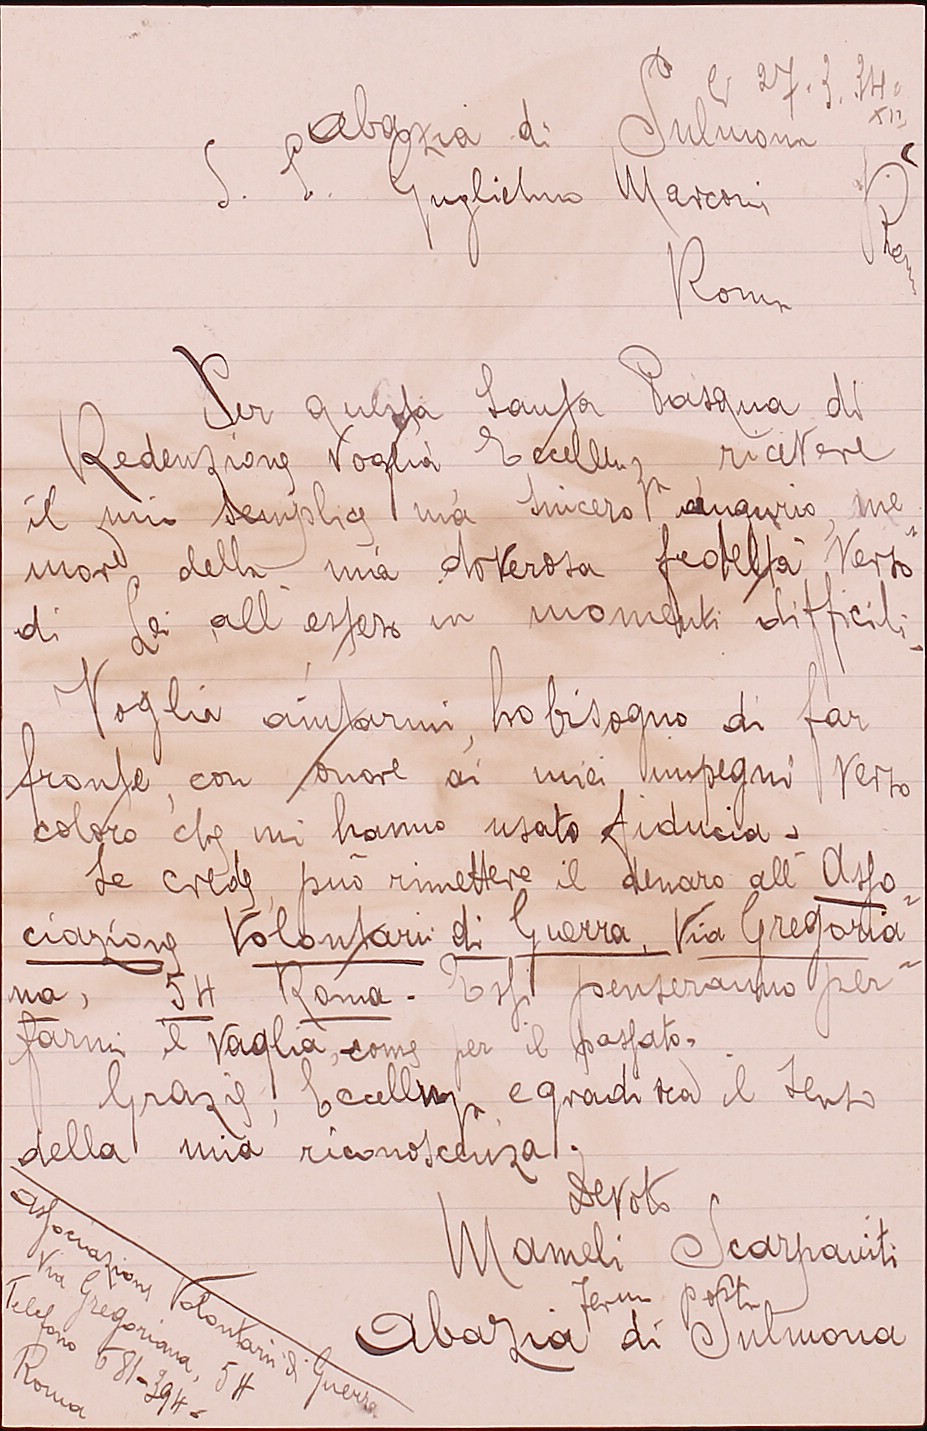 27.3.34.
XII
Abazia di Sulmona
S. E. Guglielmo Marconi
Roma
Per questa Santa Pasqua di
Redenzione Voglia Eccellenza ricevere
il mio semplice ma sincero augurio, me
more della mia doverosa fedeltà verso
di Lei all'estero in momenti difficili.
Voglia aiutarmi, ho bisogno di far
fronte, con onore ai miei impegni verso
coloro che mi hanno usato fiducia.
Se crede, può rimettere il denaro all'Asso-
ciazione Volontari di Guerra, Via Gregoria-
na, 54 Roma. Essi penseranno per-
farmi il vaglia, come per il passato.
Grazie, Eccellenza, e gradisca il senso
della mia riconoscenza.
Devoto
Mameli Scarpaviti
Fermo posta
Abazia di Sulmona
Associazione Volontari di Guerra
Via Gregoriana, 54
Telefono 681-394.
Roma